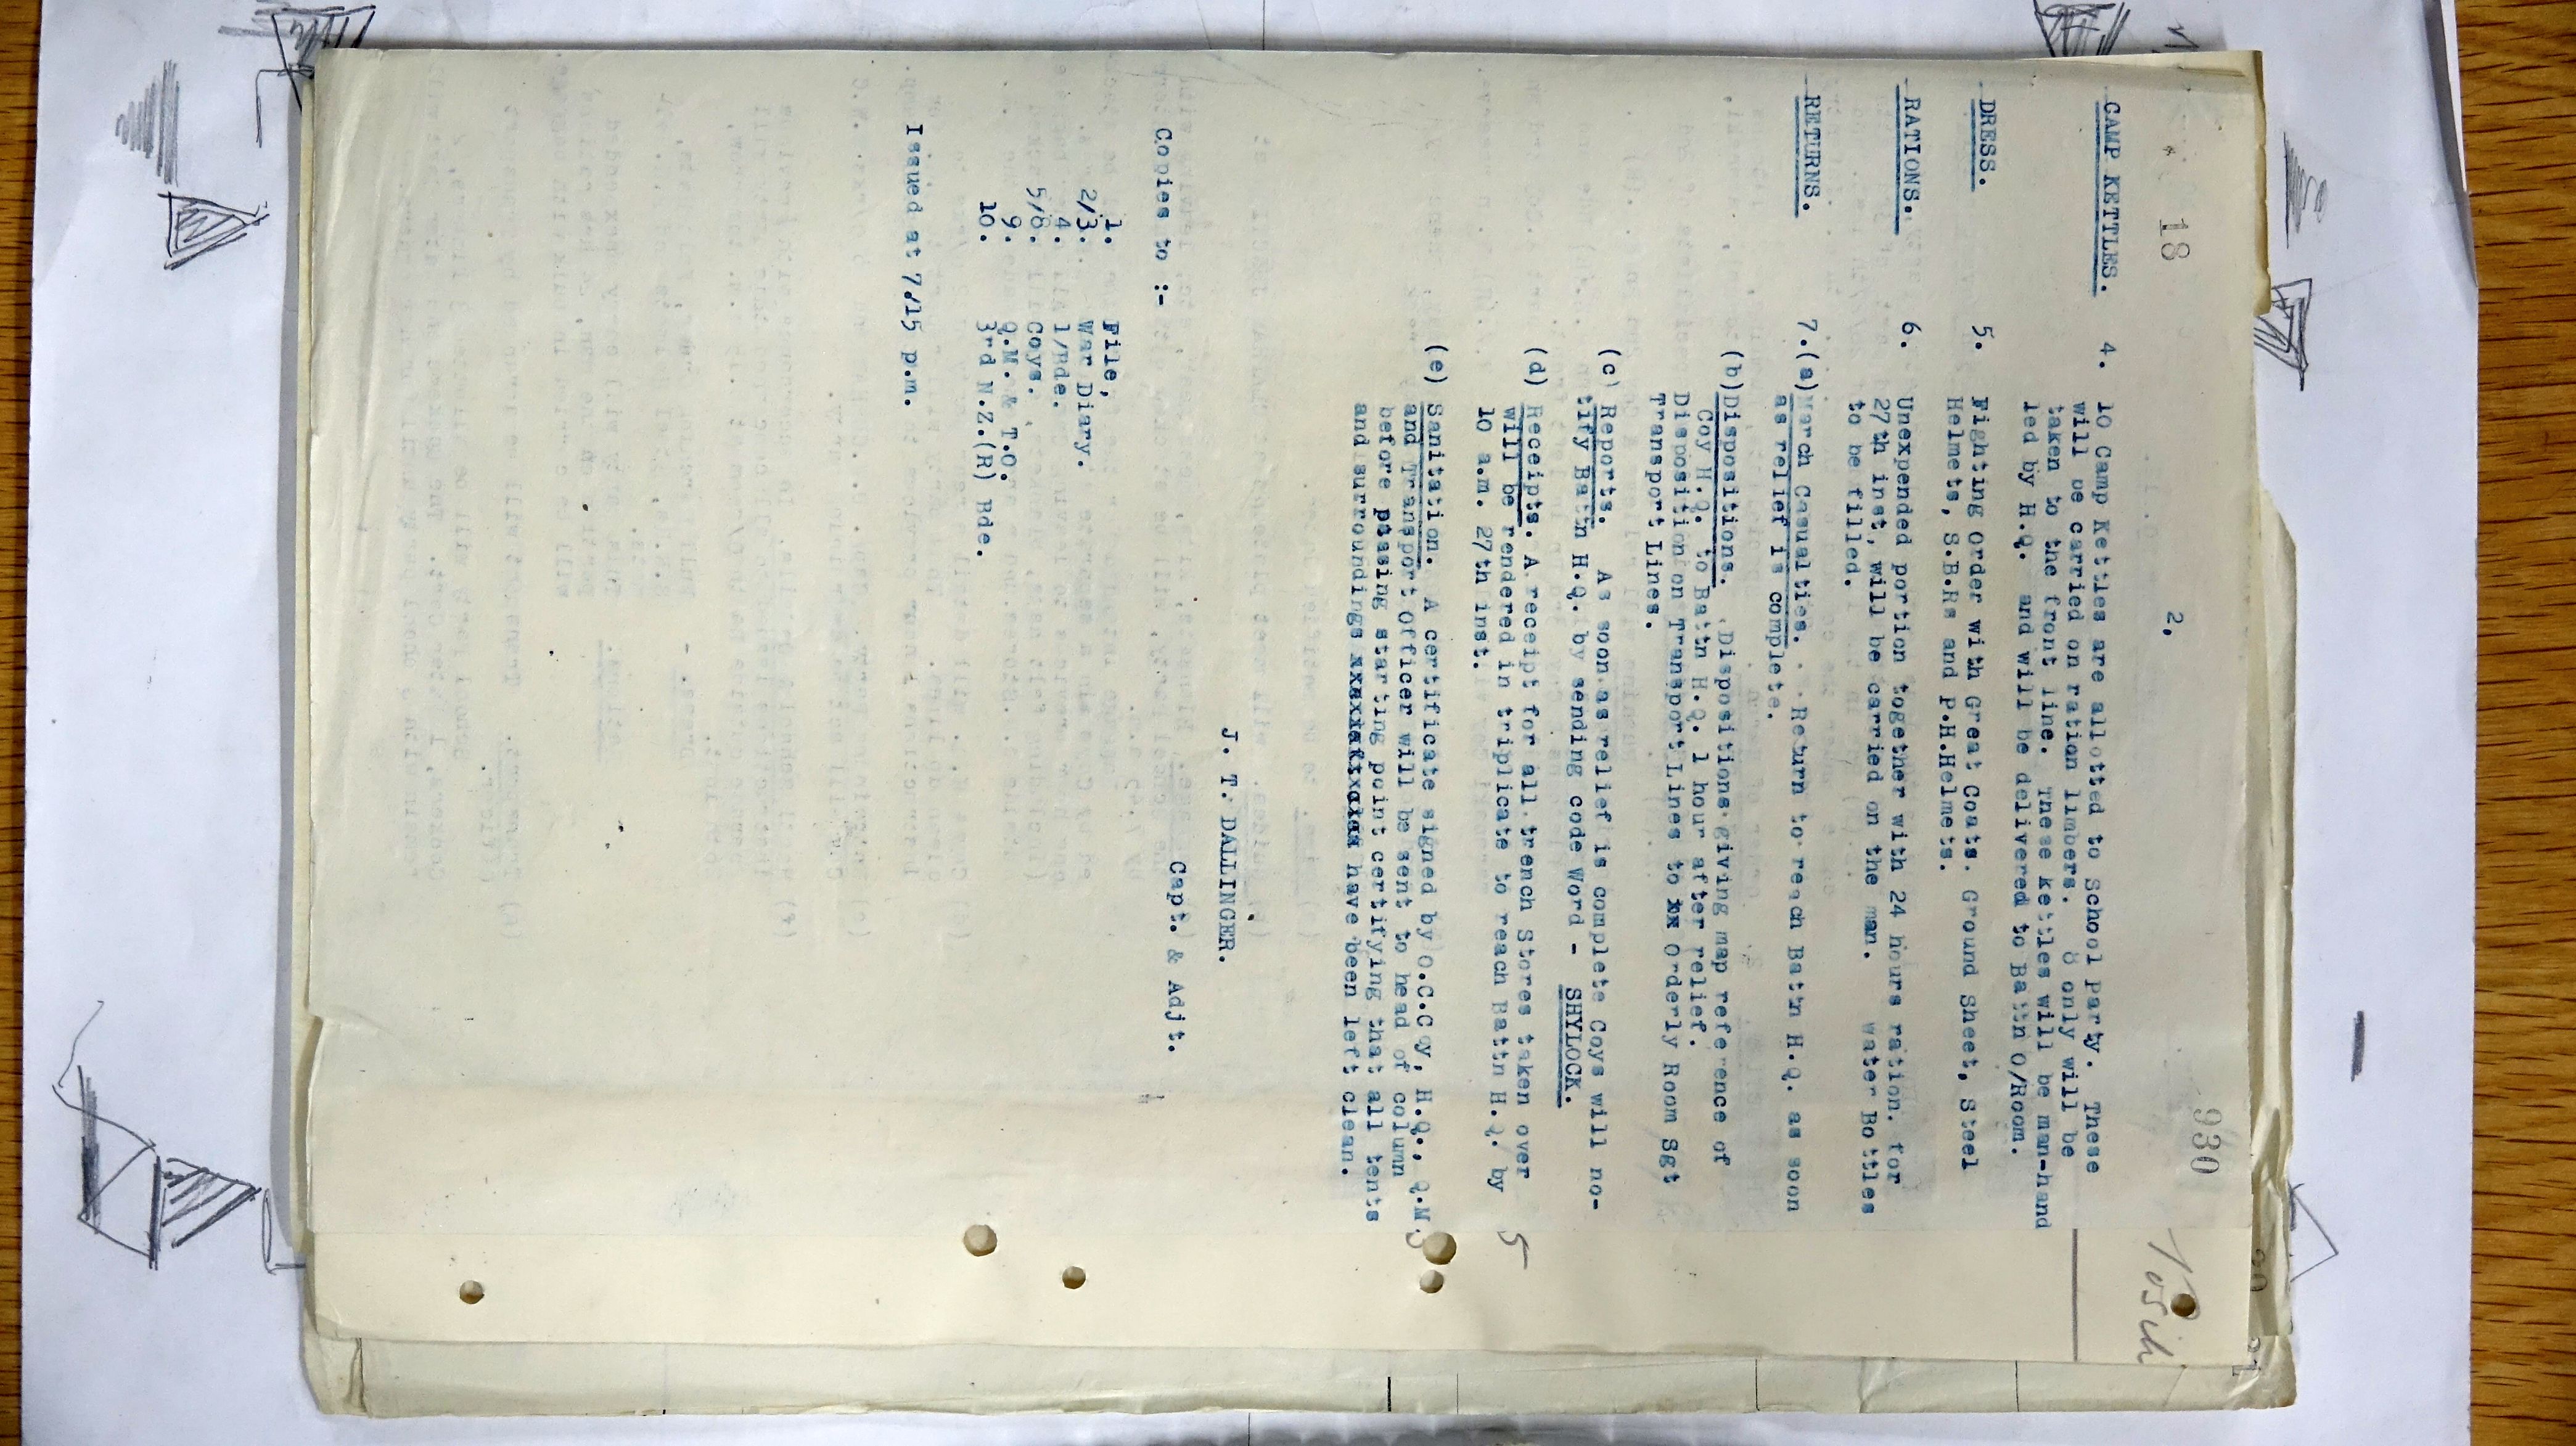 18
2,
930
CAMP KETTLES. 4. 10 Camp Kettles are allotted to School Party. These
will be carried on ration limbers. 8 only will be
taken to the front line. These kettles will be man-hand
led by H.Q. and will be delivered to Battn O/Room.
DRESS. 5. Fighting Order with Great Coats. Ground Sheet, Steel
Helmets, S.B.Rs and P.H.Helmets.
RATIONS. 6. Unexpended portion together with 24 hours ration. for
27th inst, will be carried on the man. Water Bottles
to be filled.
RETURNS. 7.(a) March Casualties. Return to reach Battn H.Q. as soon
as relief is complete.
(b) Dispositions. Dispositions giving map reference of
Coy H.Q. to Battn H.Q. 1 hour after relief.
Disposition on Transport Lines to Orderly Room Sgt
Transport Lines.
(c) Reports. As soon as relief is complete Coys will no-
tify Battn H.Q. by sending code Word - SHYLOCK.
(d) Receipts. A receipt for all trench Stores taken over
will be rendered in triplicate to reach Battn H.Q. by
10 a.m. 27th inst.
5
(e) Sanitation. A certificate signed by O.C.Coy, H.Q., Q.M
and Transport Officer will be sent to head of column
before passing starting point certifying that all tents
and surroundings have been left clean.
J. T. DALLINGER.
Capt. & Adjt.
Copies to :-
1. File,
2/3. War Diary.
4. 1/Bde.
5/8. Coys.
9. Q.M. & T.O.
10. 3rd N.Z.(R) Bde.
Issued at 7.15 p.m.